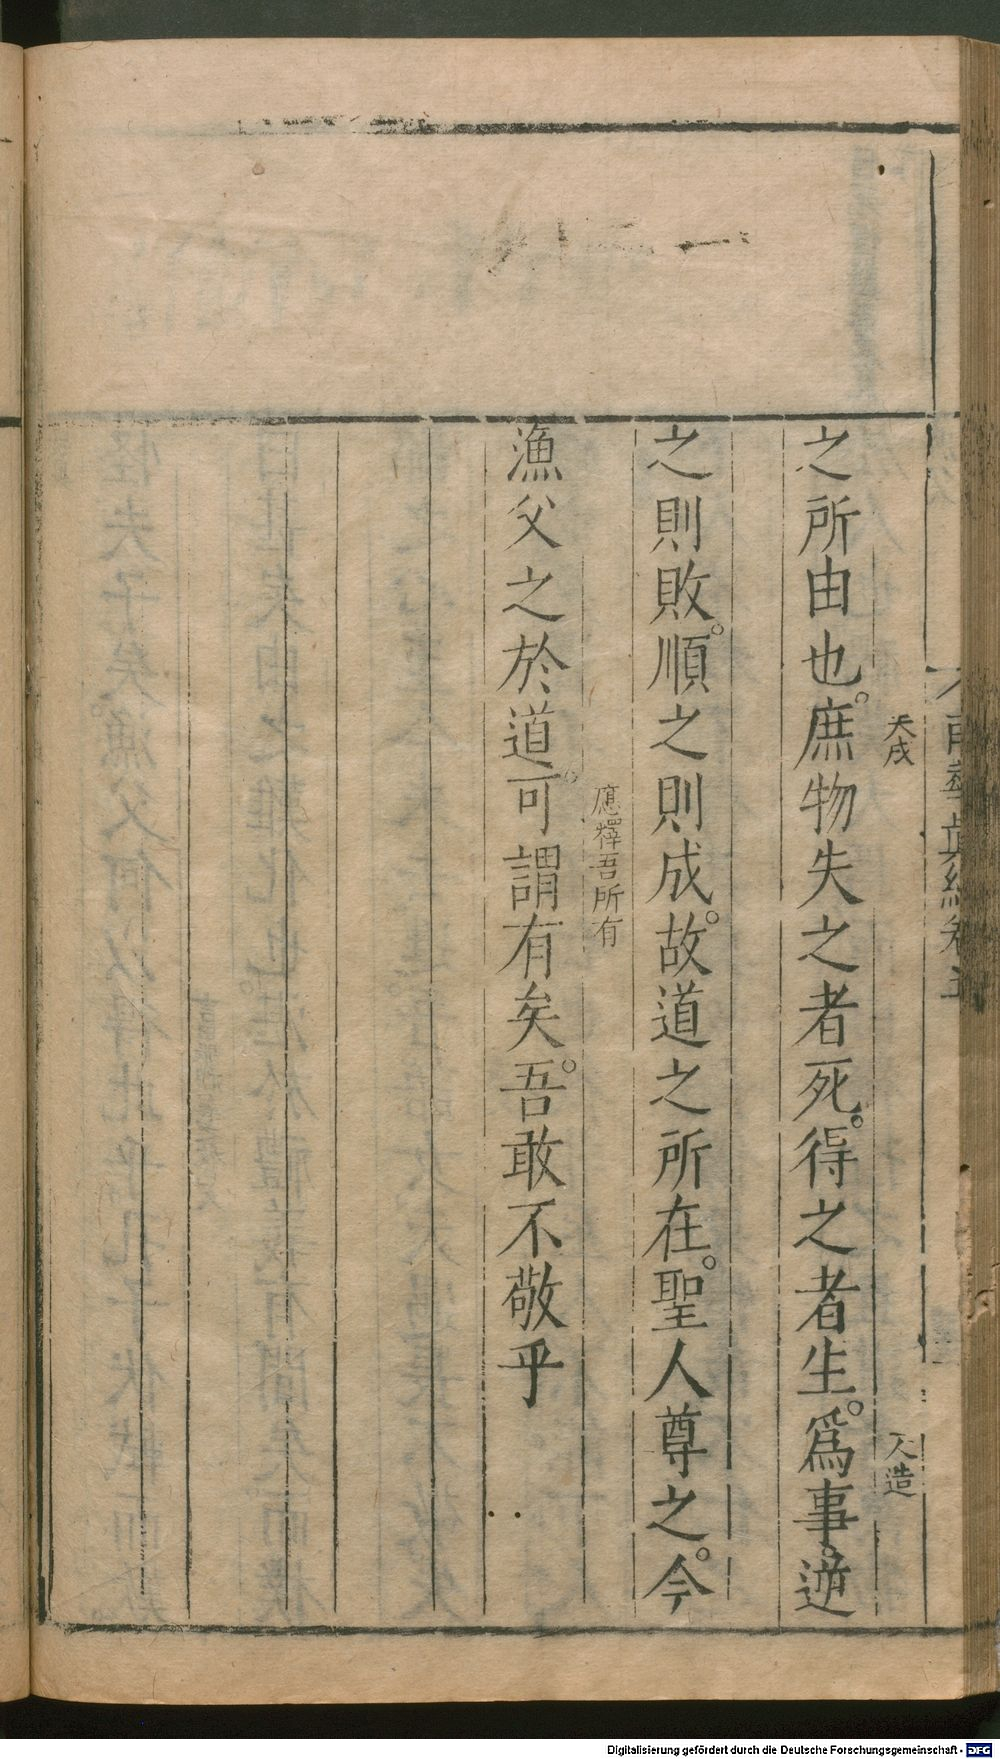 南華真經卷五
天成
人造
之所由也。庶物失之者死。得之者生。爲事。逆
之則敗。順之則成。故道之所在。聖人尊之。今
應釋吾所有
漁父之於道。可謂有矣。吾敢不敬乎
Digitalisierung gefördert durch die Deutsche Forschungsgemeinschaft - DFG